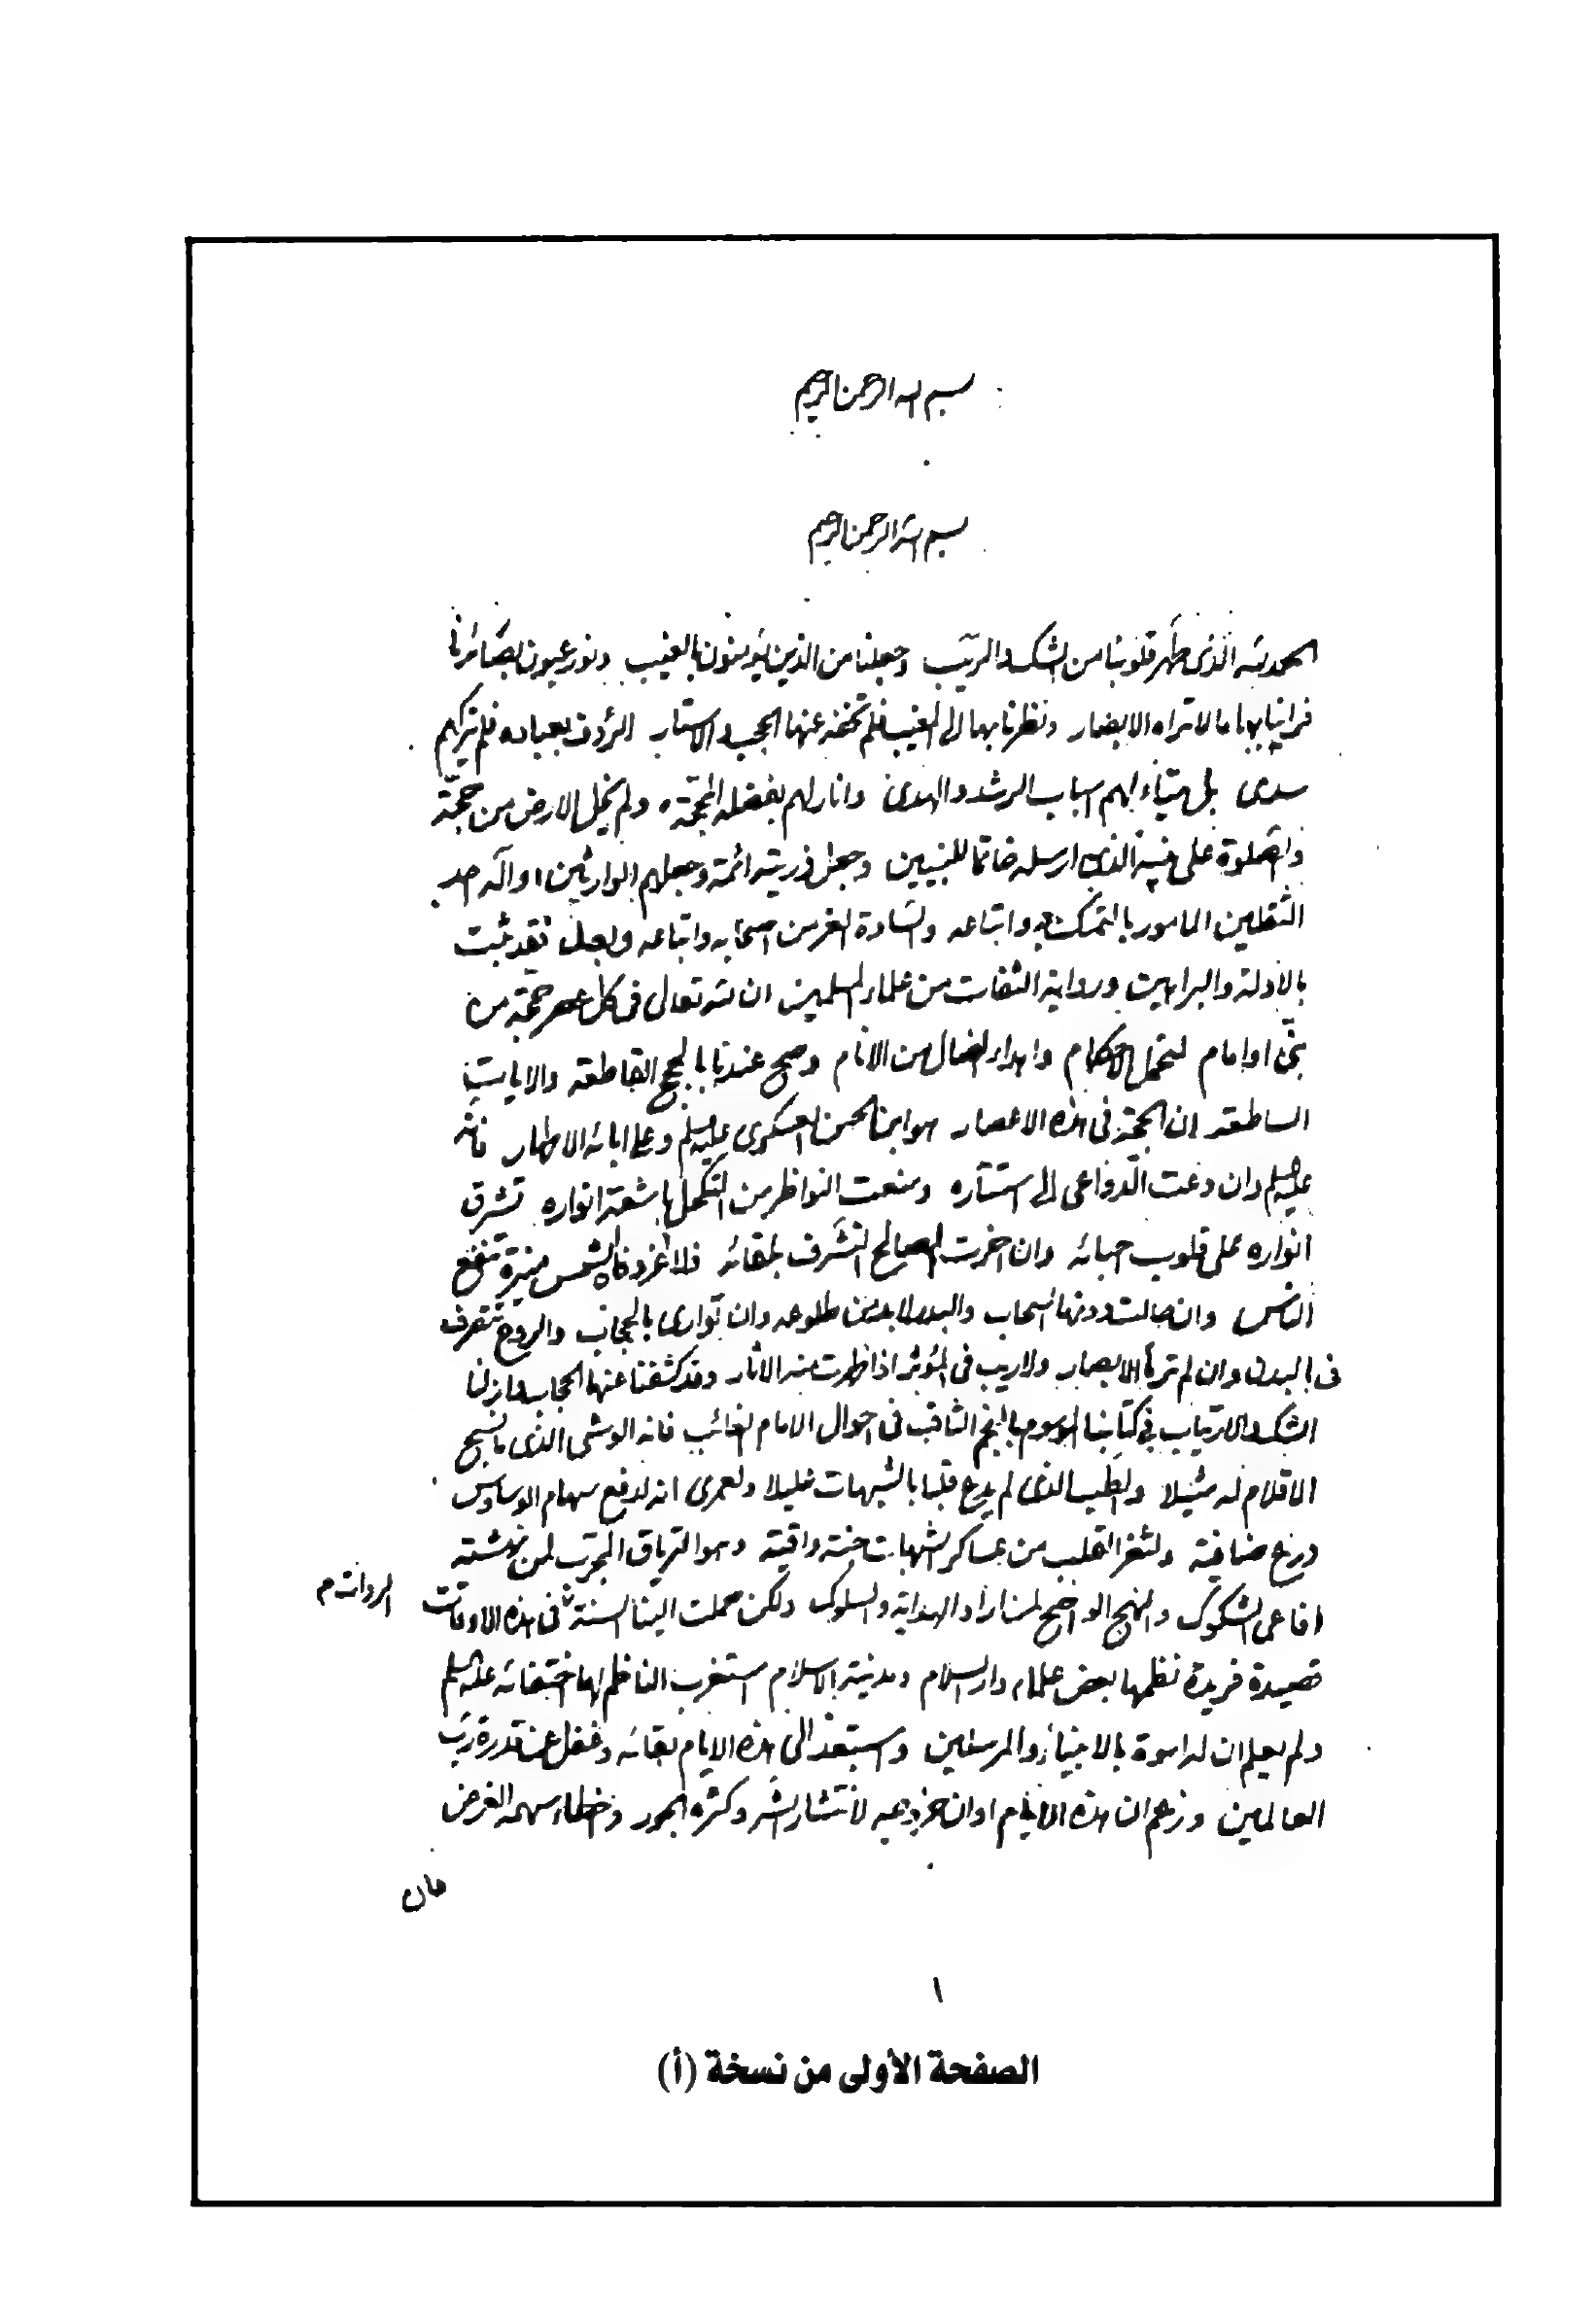 بسم الله الرحمن الرحيم
بسم الله الرحمن الرحيم
الحمد لله الذى طهر قلوبنا من الشك والريب وجعلنا من الذين يؤمنون بالغيب ونور عيون بصائرنا
فراينا بها ما لا تراه الابصار ونظرنا بها الى المغيب فلم تخفه عنها الحجب والاستار الرؤف بعباده فلم يتركهم
سدى بل هيّاء لهم اسباب الرشد والهدى وانار لهم بفضله المحجّة ولم يخل الارض من حجّة
والصلوة على نبيه الذى ارسله خاتما للنبيين وجعل ذريته ائمة وجعلهم الوارثين واله احد
الثقلين المامور بالتمسك به واتباعه والسادة الغر من اصحابه واتباعه وبعد فقد ثبت
بالادلة والبراهين ورواية الثقات من علماء المسلمين ان لله تعالى فى كل عصر حجة من
نبىّ او امام لتحمل الاحكام واهداء الضال من الانام وصح عندنا بالحجج القاطعه والايات
الساطعه ان الحجة فى هذه الاعصار هو ابن الحسن العسكرى عليه السلم وعلى ابائه الاطهار فانه
عليه السلم وان دعت الدواعى الى استتاره ومنعت النواظر من التكحل باشعة انواره تشرق
انواره على قلوب احبائه وان اخرت المصالح التشرف بلقائه فلا غرو فالشمس منيرة تنفع
الناس وان حالت دونها السحاب والبدر لا بد من طلوعه وان توارى بالحجاب والروح تتصرف
فى البدن وان لم ترها الابصار ولا ريب فى المؤثر اذا ظهرت منه الاثار وقد كشفنا عنها الحجاب وازلنا
الشك والارتياب فى كتابنا الموسوم بالنجم الثاقب فى احوال الامام الغائب فانه الوشى الذى ما نسج
الاقلام له مثيلا والطب الذى لم يدع قلبا بالشبهات عليلا ولعمرى انه لدفع سهام الوساوس
درع ضافية ولثغر القلب من عساكر الشبهات جنة واقية وهو الترياق المجرب لمن نهشته
افاعى الشكوك والنهج الواضح لمن اراد الهداية والسلوك ولكن حملت الينا السنة فى هذه الاوقات
الروات م
قصيدة فريدة نظمها بعض علماء دار السلام ومدينة الاسلام استغرب الناظم لها اختفائه عليه السلم
ولم يعلم ان له اسوة بالانبياء والمرسلين واستبعد الى هذه الايام بقائه وغفل عن قدرة رب
العالمين وزعم ان هذه الايام اوان خروجه لانتشار الشر وكثرة الجور وخطاء سهمه الغرض
فان
١
الصفحة الأولى من نسخة (أ)